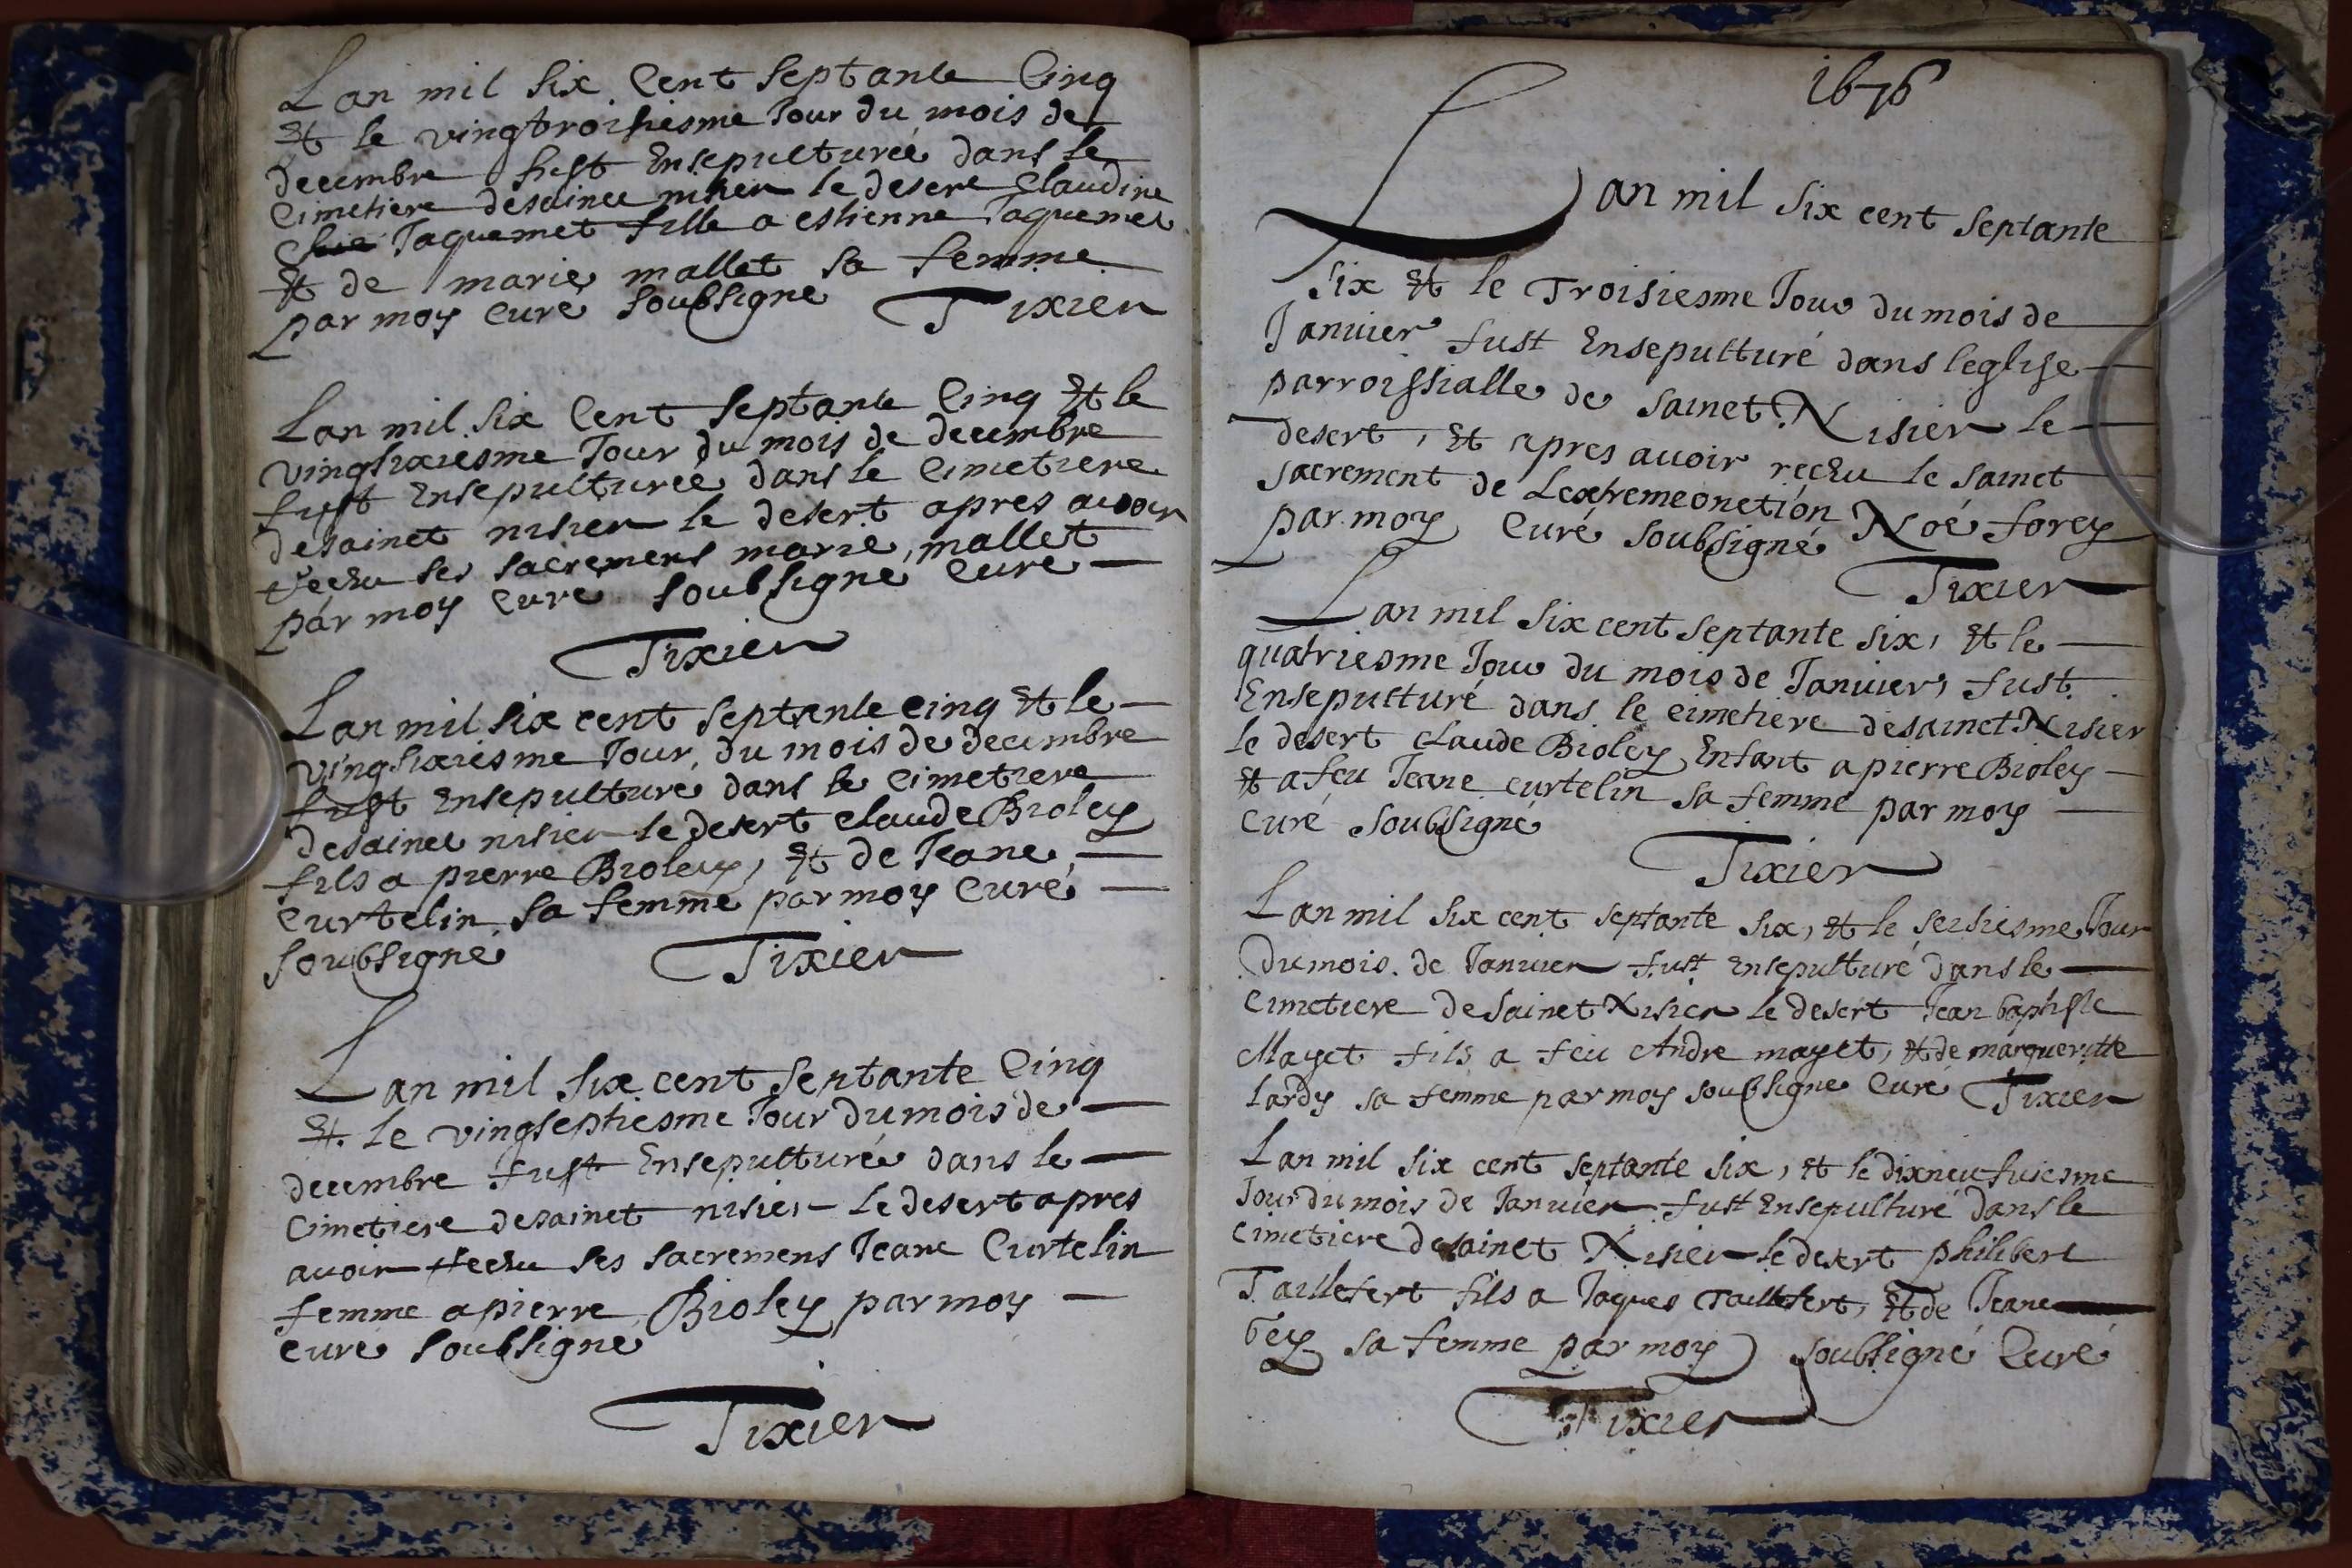 Lan mil six Cent septante Cinq
Et le vingtroisiesme Jour du mois de
decembre fust Ensepulturée dans le
Cimetiere desainct nisier le desert Claudine
Jaquemet fille a estienne Jaquemet
Et de marie mallet sa femme
par moy Curé soubsigné Tixier
Lan mil six Cent septante Cinq Et le
vingsixiesme Jour du mois de decembre
fust Ensepulturée dans le Cimetiere
desainct nisier le desert apres avoir
recëu ses sacremens marie mallet
par moy Curé soubsigné Curé
Tixier
Lan mil six cent septante cinq Et le
vingsixiesme Jour du mois de decembre
fust Ensepulturé dans le Cimetiere
desainct nisier le desert claude Bioley
fils a pierre Bioley, Et de Jeane
Curtelin sa femme par moy Curé
soubsigné Tixier
Lan mil six cent septante Cinq
Et le vingseptiesme Jour du mois de
decembre fust Ensepulturée dans le
Cimetiere desainct nisier le desert apres
avoir recëu ses sacremens Jeane Curtelin
femme a pierre Bioley par moy
curé soubsigné
Tixier
1676
Lan mil six cent septante
six Et le Troisiesme Jour du mois de
Januier fust Ensepulturé dans leglise
parroissialle de sainct Nisier le
desert, Et apres auoir recëu le sainct
sacrement de Lextremeonction Noé forey
par moy Curé soubsigné
Tixier
Lan mil six cent septante six, Et le
quatriesme Jour du mois de Januier, fust
Ensepulturé dans le cimetiere desainct Nisier
le desert claude Bioley Enfant a pierre Bioley
Et a feu Jeane curtelin sa femme par moy
Curé soubsigné
Tixier
Lan mil six cent septante six, Et le seisiesme Jour
du mois de Januier fust Ensepulturé dans le
Cimetiere de sainct Nisier le desert Jean baptiste
Mayet fils a feu Andre mayet, Et de margueritte
Lardy sa femme par moy soubsigné Curé Tixier
Lan mil six cent septante six, Et le dixneufuiesme
Jour du mois de Januier fust Ensepulturé dans le
Cimetiere desainct Nisier le desert philibert
Taillefert fils a Jaques Taillefert, Et de Jeane
bey sa femme par moy soubsigné Curé
Tixier